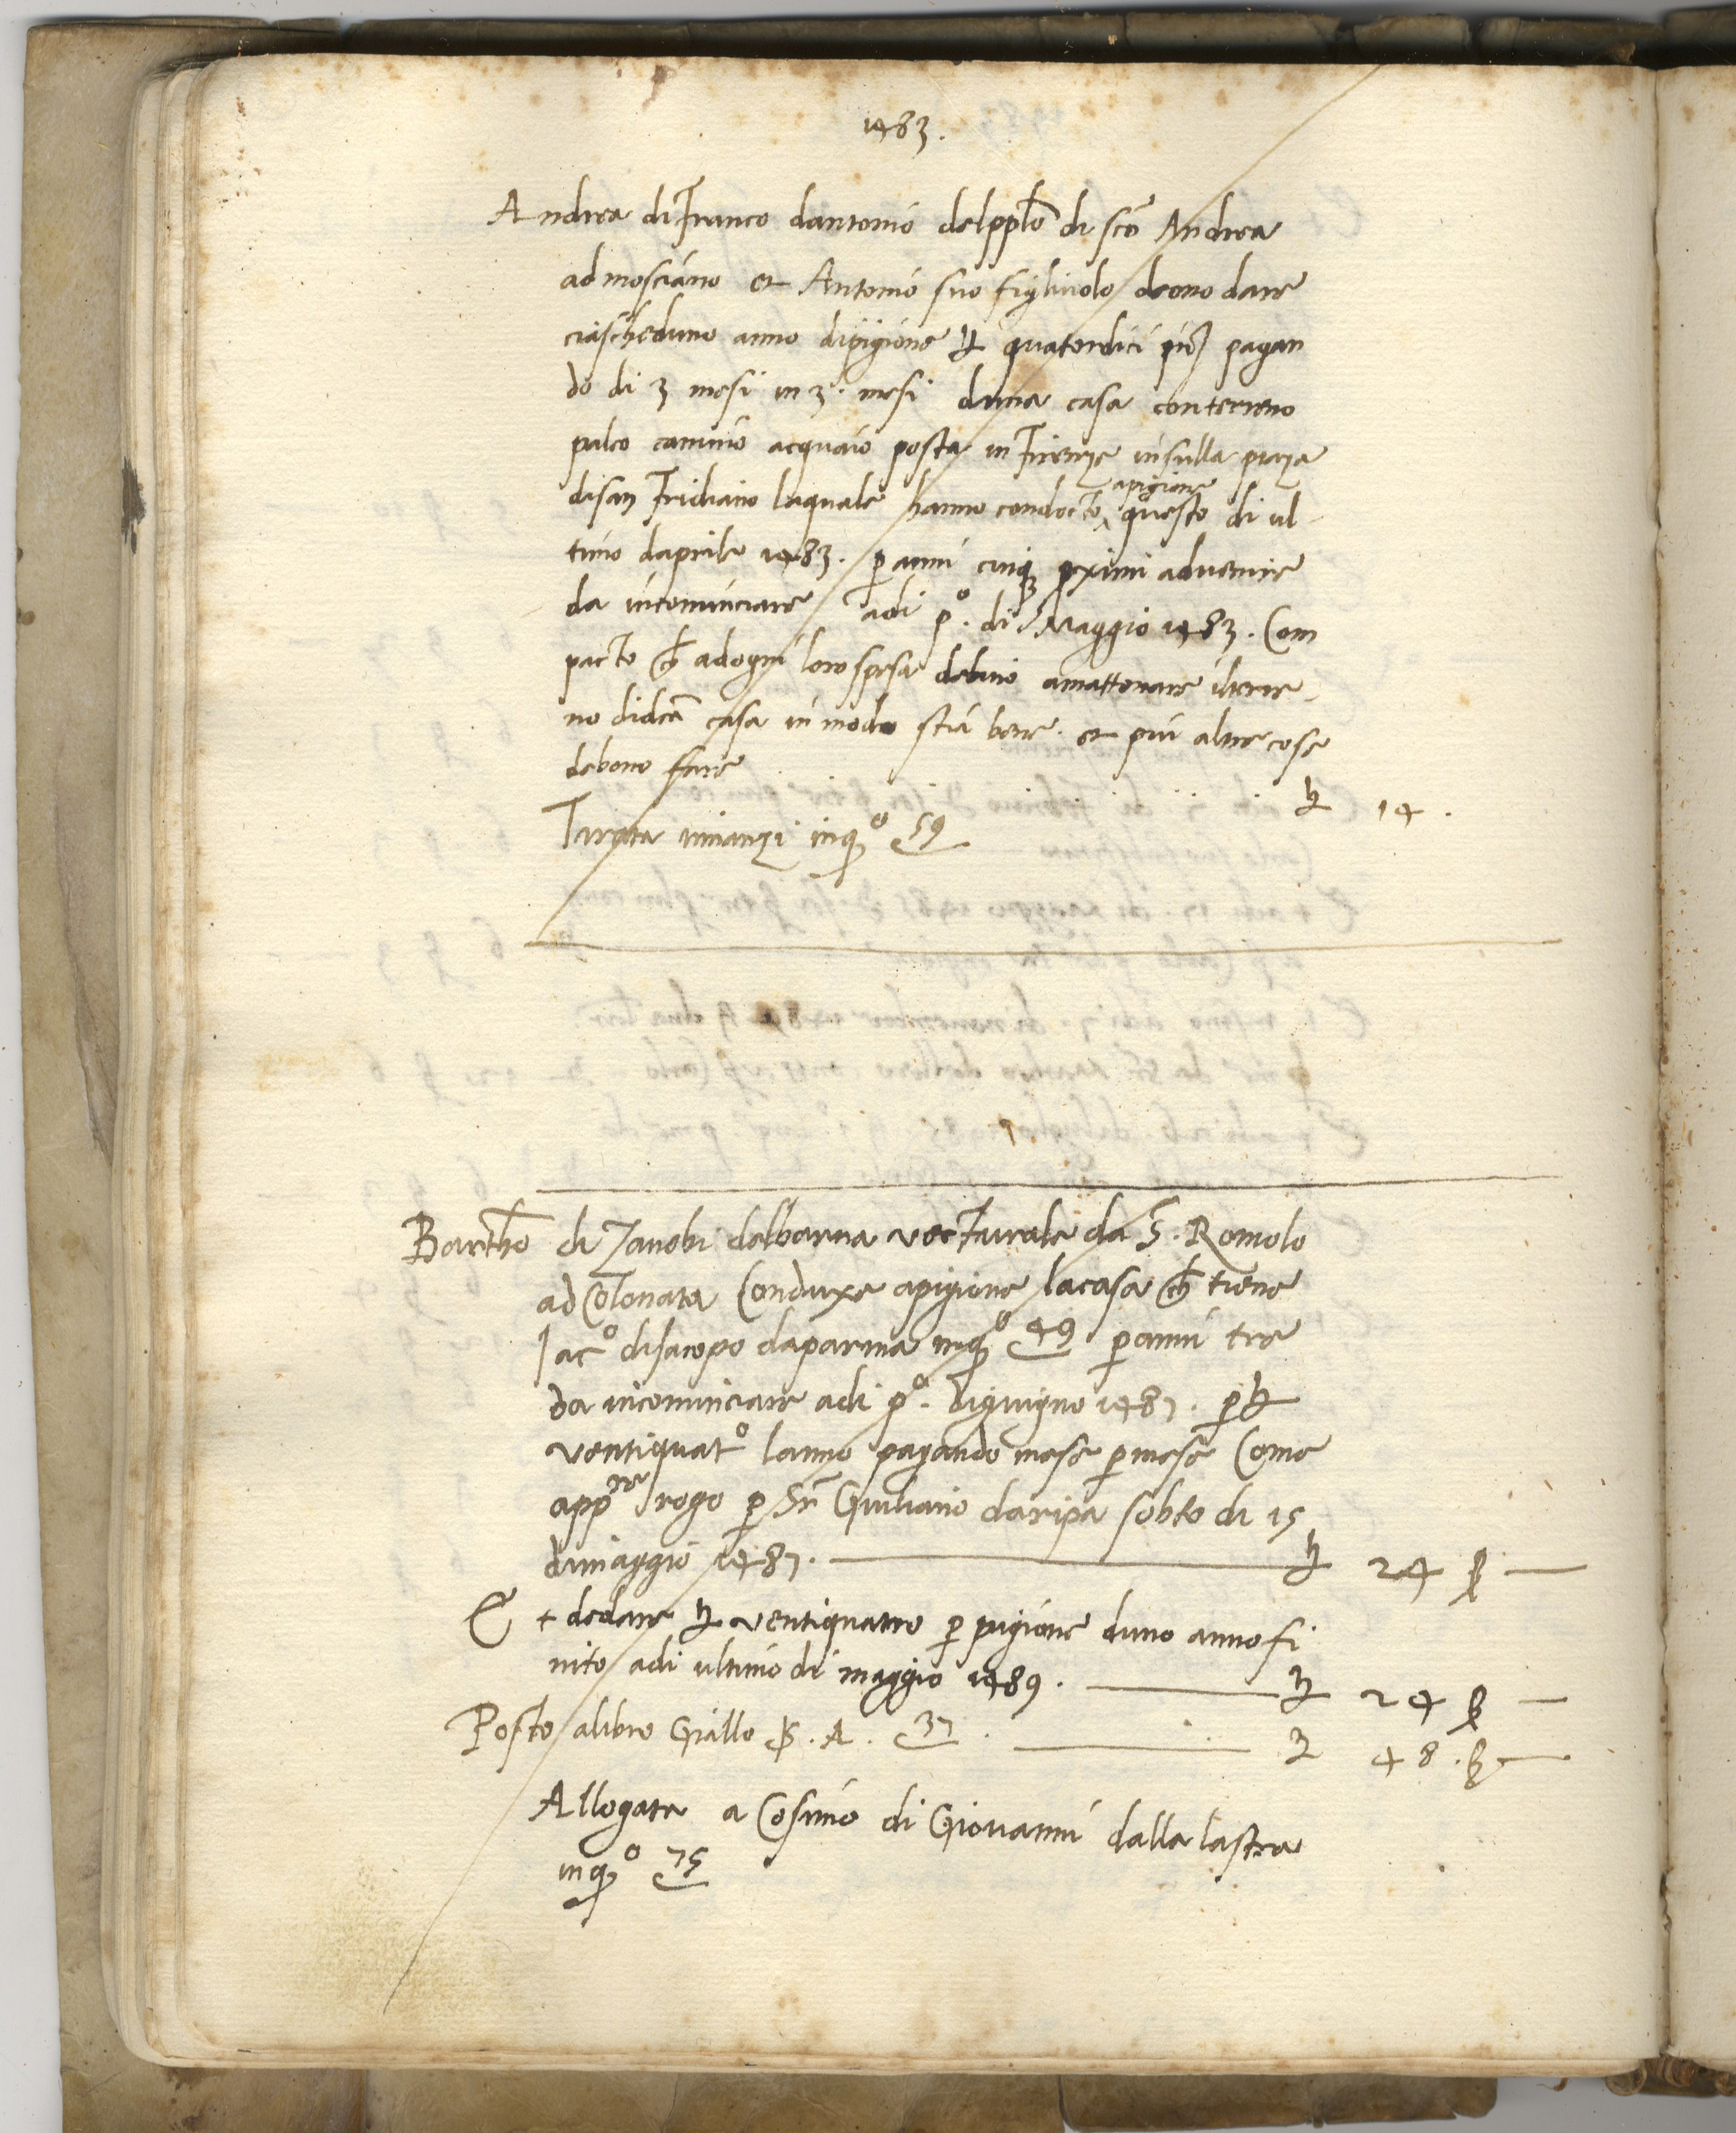 1483.
Andrea di Franco dantonio del pplo di sco Andrea
ad mosciano et Antonio suo figliuolo deono dare
ciascheduno anno di pigione ł quatordici pic̄ pagan
do di 3 mesi in 3. mesi duna casa con terreno
palco camino acquaio posta in Firenze in sulla piaza
di san Fridiano laquale hanno condocto apigione questo di ul
timo daprile 1483. p anni cinq proximi advenire
da incominciare adi p.º di Maggio 1483. Com
pacto ch adogni loro spesa debino amattonare il terre
no di dcā casa in modo stia bene. et piu altre cose
debono fare
ł 14.
Tirata innanzi in qº 59
Bartho di Zanobi del barna vecturale da S. Romolo
ad Colonata Conduxe apigione la casa ch tiene
Jacº di Jacopo da parma in qº 49 p anni tre
da incominciare adi pº. di giugno 1487. p ł
ventiquatº lanno pagando mese p mese Come
appre rogo p Sr Giuliano da ripa sobto di 15
di maggio 1487. ł 24 ß —
E + de dare ł ventiquatro p pigione duno anno fi
nito adi ultimo di maggio 1489. ł 24 ß —
Posto a libro Giallo s. A. 37. ł 48. ß —
Allogata a Cosimo di Giovanni dalla lastra
in qº 75